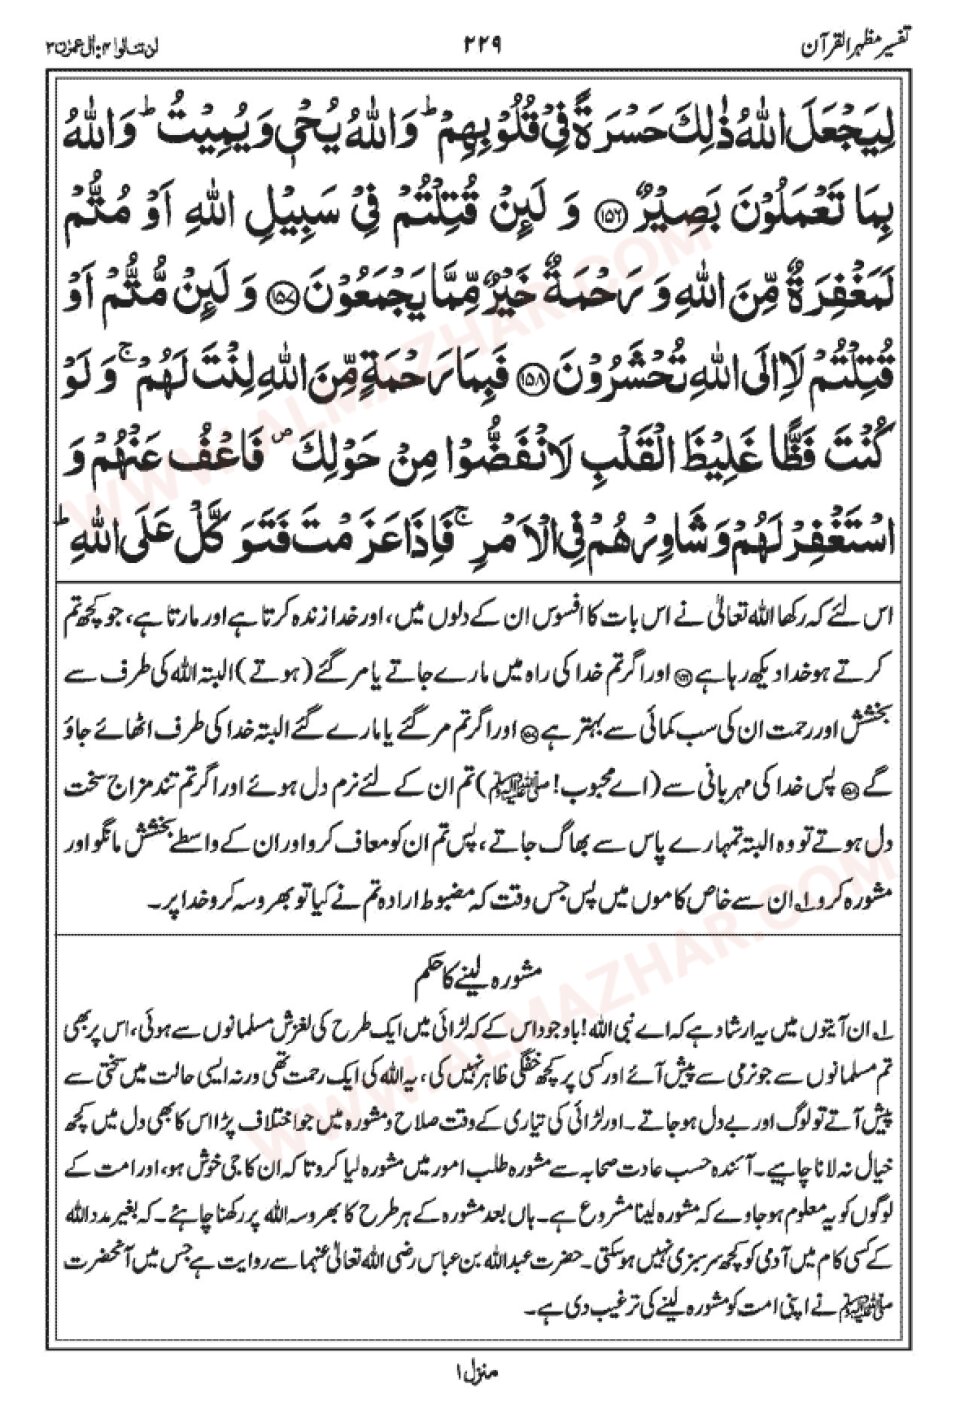 تفسیر مظہر القرآن
۲۲۹
لن تنالوا ۴: اٰل عمرٰن ۳
لِیَجْعَلَ اللّٰهُ ذٰلِكَ حَسْرَةً فِیْ قُلُوْبِهِمْ ؕ وَاللّٰهُ یُحْیٖ وَیُمِیْتُ ؕ وَاللّٰهُ
بِمَا تَعْمَلُوْنَ بَصِیْرٌ ﴿۱۵۶﴾ وَ لَىِٕنْ قُتِلْتُمْ فِیْ سَبِیْلِ اللّٰهِ اَوْ مُتُّمْ
لَمَغْفِرَةٌ مِّنَ اللّٰهِ وَ رَحْمَةٌ خَیْرٌ مِّمَّا یَجْمَعُوْنَ ﴿۱۵۷﴾ وَ لَىِٕنْ مُّتُّمْ اَوْ
قُتِلْتُمْ لَاۡ اِلَی اللّٰهِ تُحْشَرُوْنَ ﴿۱۵۸﴾ فَبِمَا رَحْمَةٍ مِّنَ اللّٰهِ لِنْتَ لَهُمْ ۚ وَ لَوْ
كُنْتَ فَظًّا غَلِیْظَ الْقَلْبِ لَانْفَضُّوْا مِنْ حَوْلِكَ ۪ فَاعْفُ عَنْهُمْ وَ
اسْتَغْفِرْ لَهُمْ وَ شَاوِرْهُمْ فِی الْاَمْرِ ۚ فَاِذَا عَزَمْتَ فَتَوَكَّلْ عَلَی اللّٰهِ ؕ
اس لئے کہ رکھا اللہ تعالیٰ نے اس بات کا افسوس ان کے دلوں میں، اور خدا زندہ کرتا ہے اور مارتا ہے، جو کچھ تم
کرتے ہو خدا دیکھ رہا ہے ﴿۱۵۶﴾ اور اگر تم خدا کی راہ میں مارے جاتے یا مر گئے (ہوتے) البتہ اللہ کی طرف سے
بخشش اور رحمت ان کی سب کمائی سے بہتر ہے ﴿۱۵۷﴾ اور اگر تم مر گئے یا مارے گئے البتہ خدا کی طرف اٹھائے جاؤ
گے ﴿۱۵۸﴾ پس خدا کی مہربانی سے (اے محبوب! ﷺ) تم ان کے لئے نرم دل ہوئے اور اگر تم تند مزاج سخت
دل ہوتے تو وہ البتہ تمہارے پاس سے بھاگ جاتے، پس تم ان کو معاف کرو اور ان کے واسطے بخشش مانگو اور
مشورہ کرو ۱؎ ان سے خاص کاموں میں پس جس وقت کہ مضبوط ارادہ تم نے کیا تو بھروسہ کرو خدا پر۔
مشورہ لینے کا حکم
۱؎ ان آیتوں میں یہ ارشاد ہے کہ اے نبی اللہ! باوجود اس کے کہ لڑائی میں ایک طرح کی لغزش مسلمانوں سے ہوئی، اس پر بھی
تم مسلمانوں سے جو نرمی سے پیش آئے اور کسی پر کچھ خفگی ظاہر نہیں کی، یہ اللہ کی ایک رحمت تھی ورنہ ایسی حالت میں سختی سے
پیش آتے تو لوگ اور بے دل ہو جاتے۔ اور لڑائی کی تیاری کے وقت صلاح و مشورہ میں جو اختلاف پڑا اس کا بھی دل میں کچھ
خیال نہ لانا چاہیے۔ آئندہ حسب عادت صحابہ سے مشورہ طلب امور میں مشورہ لیا کرو تا کہ ان کا جی خوش ہو، اور امت کے
لوگوں کو یہ معلوم ہو جاوے کہ مشورہ لینا مشروع ہے۔ ہاں بعد مشورہ کے ہر طرح کا بھروسہ اللہ پر رکھنا چاہئے۔ کہ بغیر مدد اللہ
کے کسی کام میں آدمی کو کچھ سرسبزی نہیں ہو سکتی۔ حضرت عبداللہ بن عباس رضی اللہ تعالیٰ عنہما سے روایت ہے جس میں آنحضرت
ﷺ نے اپنی امت کو مشورہ لینے کی ترغیب دی ہے۔
منزل ۱
WWW.ALMAZHAR.COM
WWW.ALMAZHAR.COM